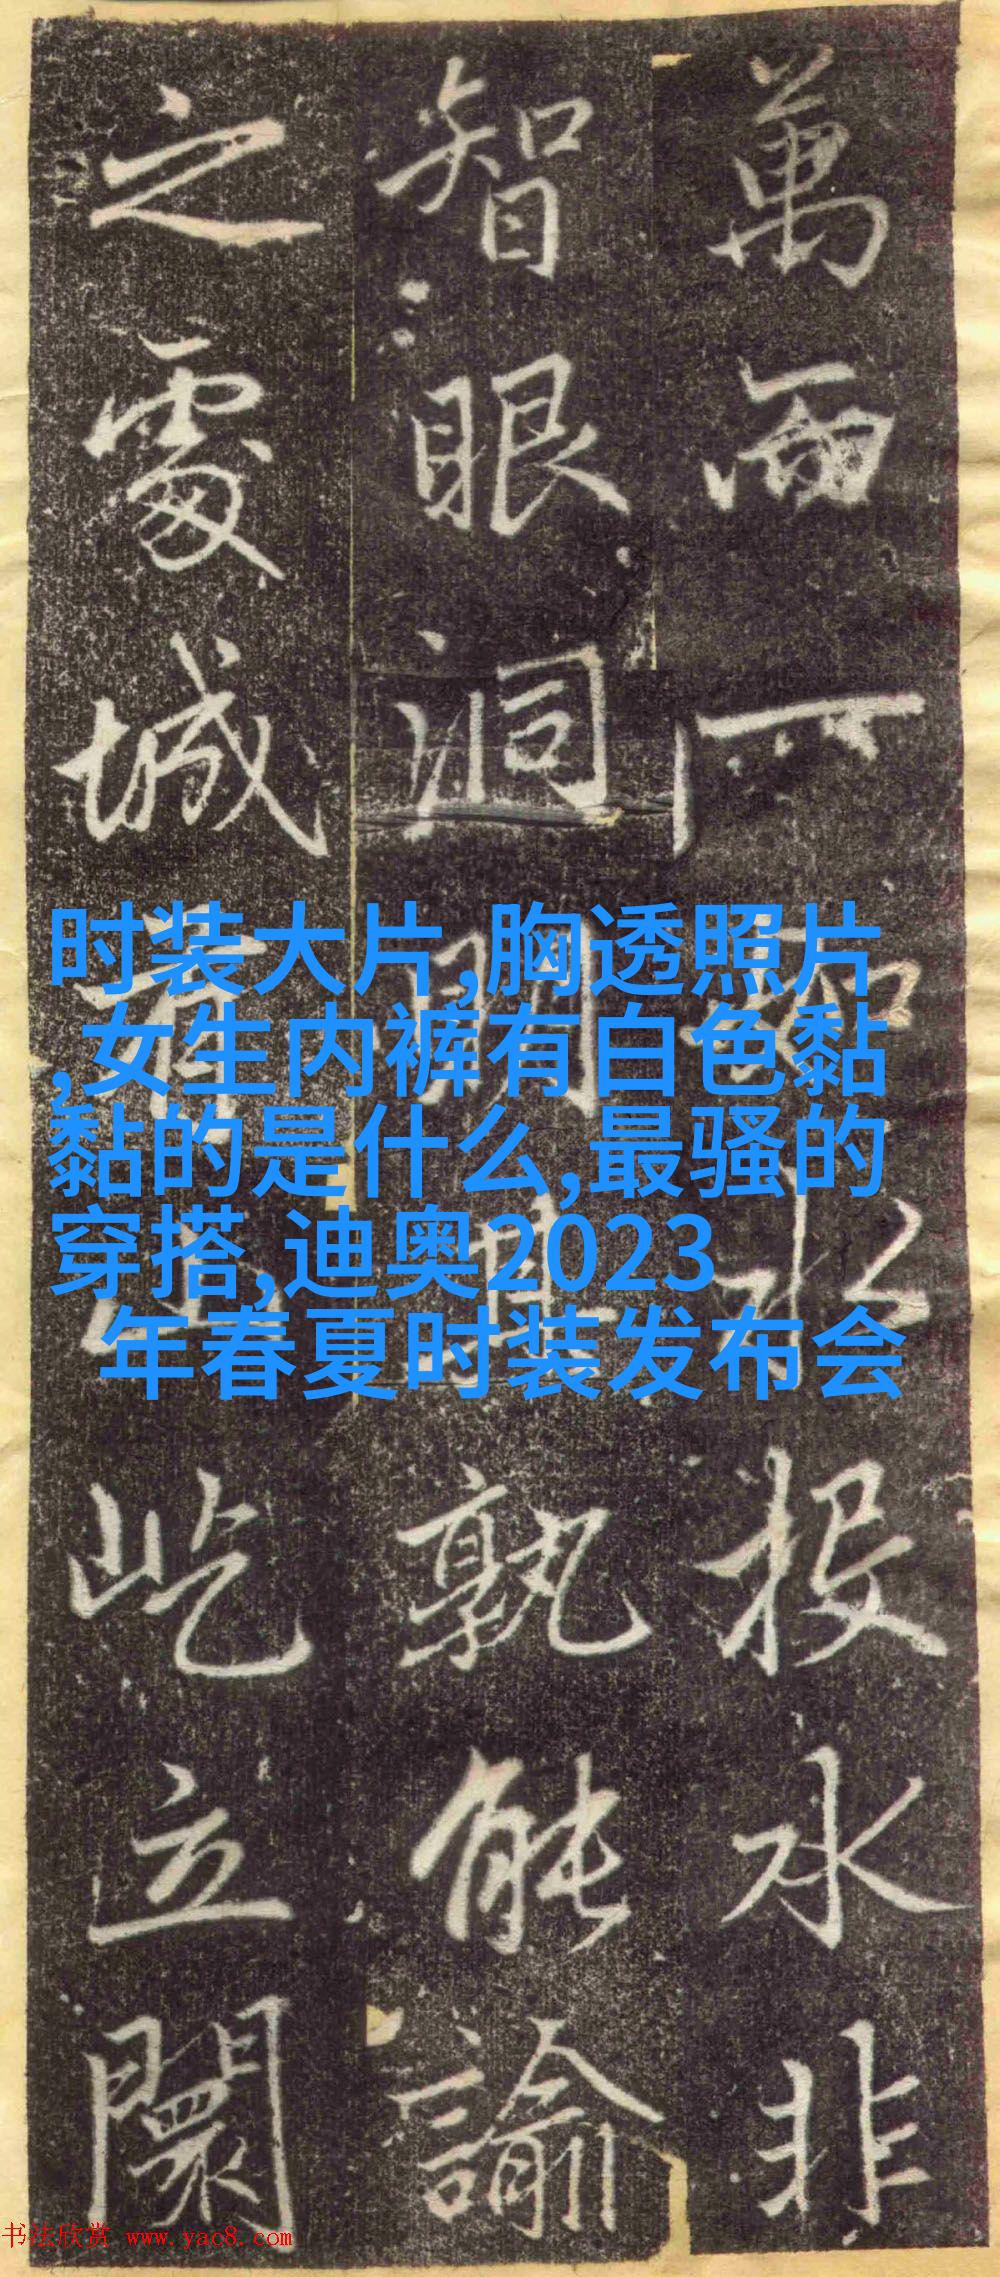 萬而一
投水非
智眼洞
孰能諭
之處城
屹立闤
时装大片,胸透照片
,女生内裤有白色黏
黏的是什么,最骚的
穿搭,迪奥2023
年春夏时装发布会
书法欣赏 www.yac8.com